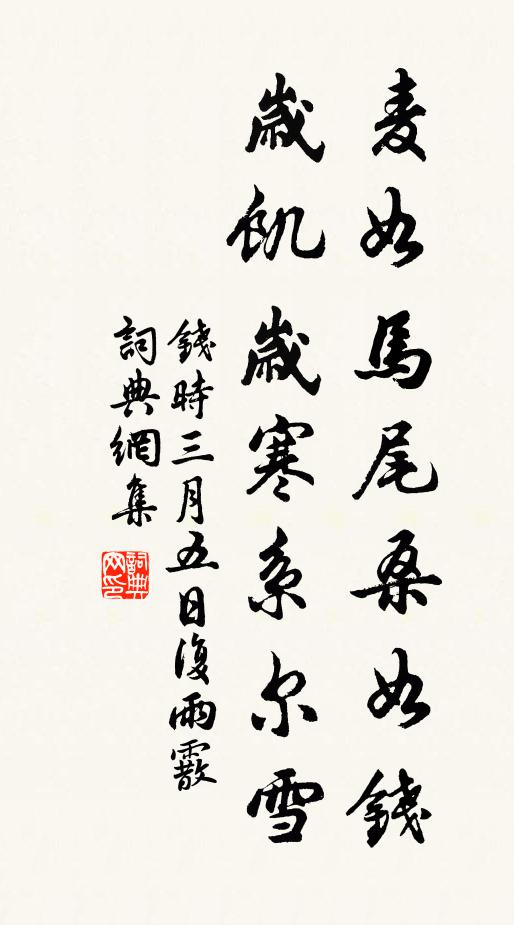 麦如馬尾桑如錢
歲飢歲寒系尔雪
錢時三月五日復雨霰
詞典網集
詞典網印